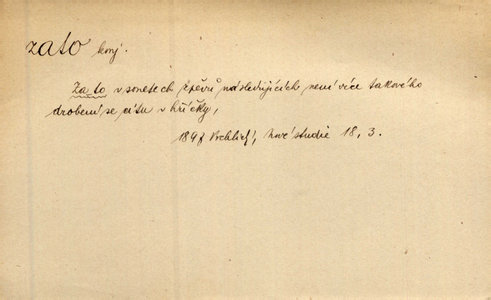 zato konj.
Za to v sonetech zpěvů následujících není více takového
drobení se citu v hříčky,
1897 Vrchlický, Nové studie 18, 3.